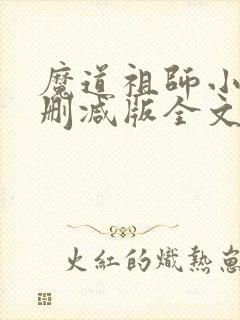 魔道祖師小
刪減版全文
火紅的熾熱